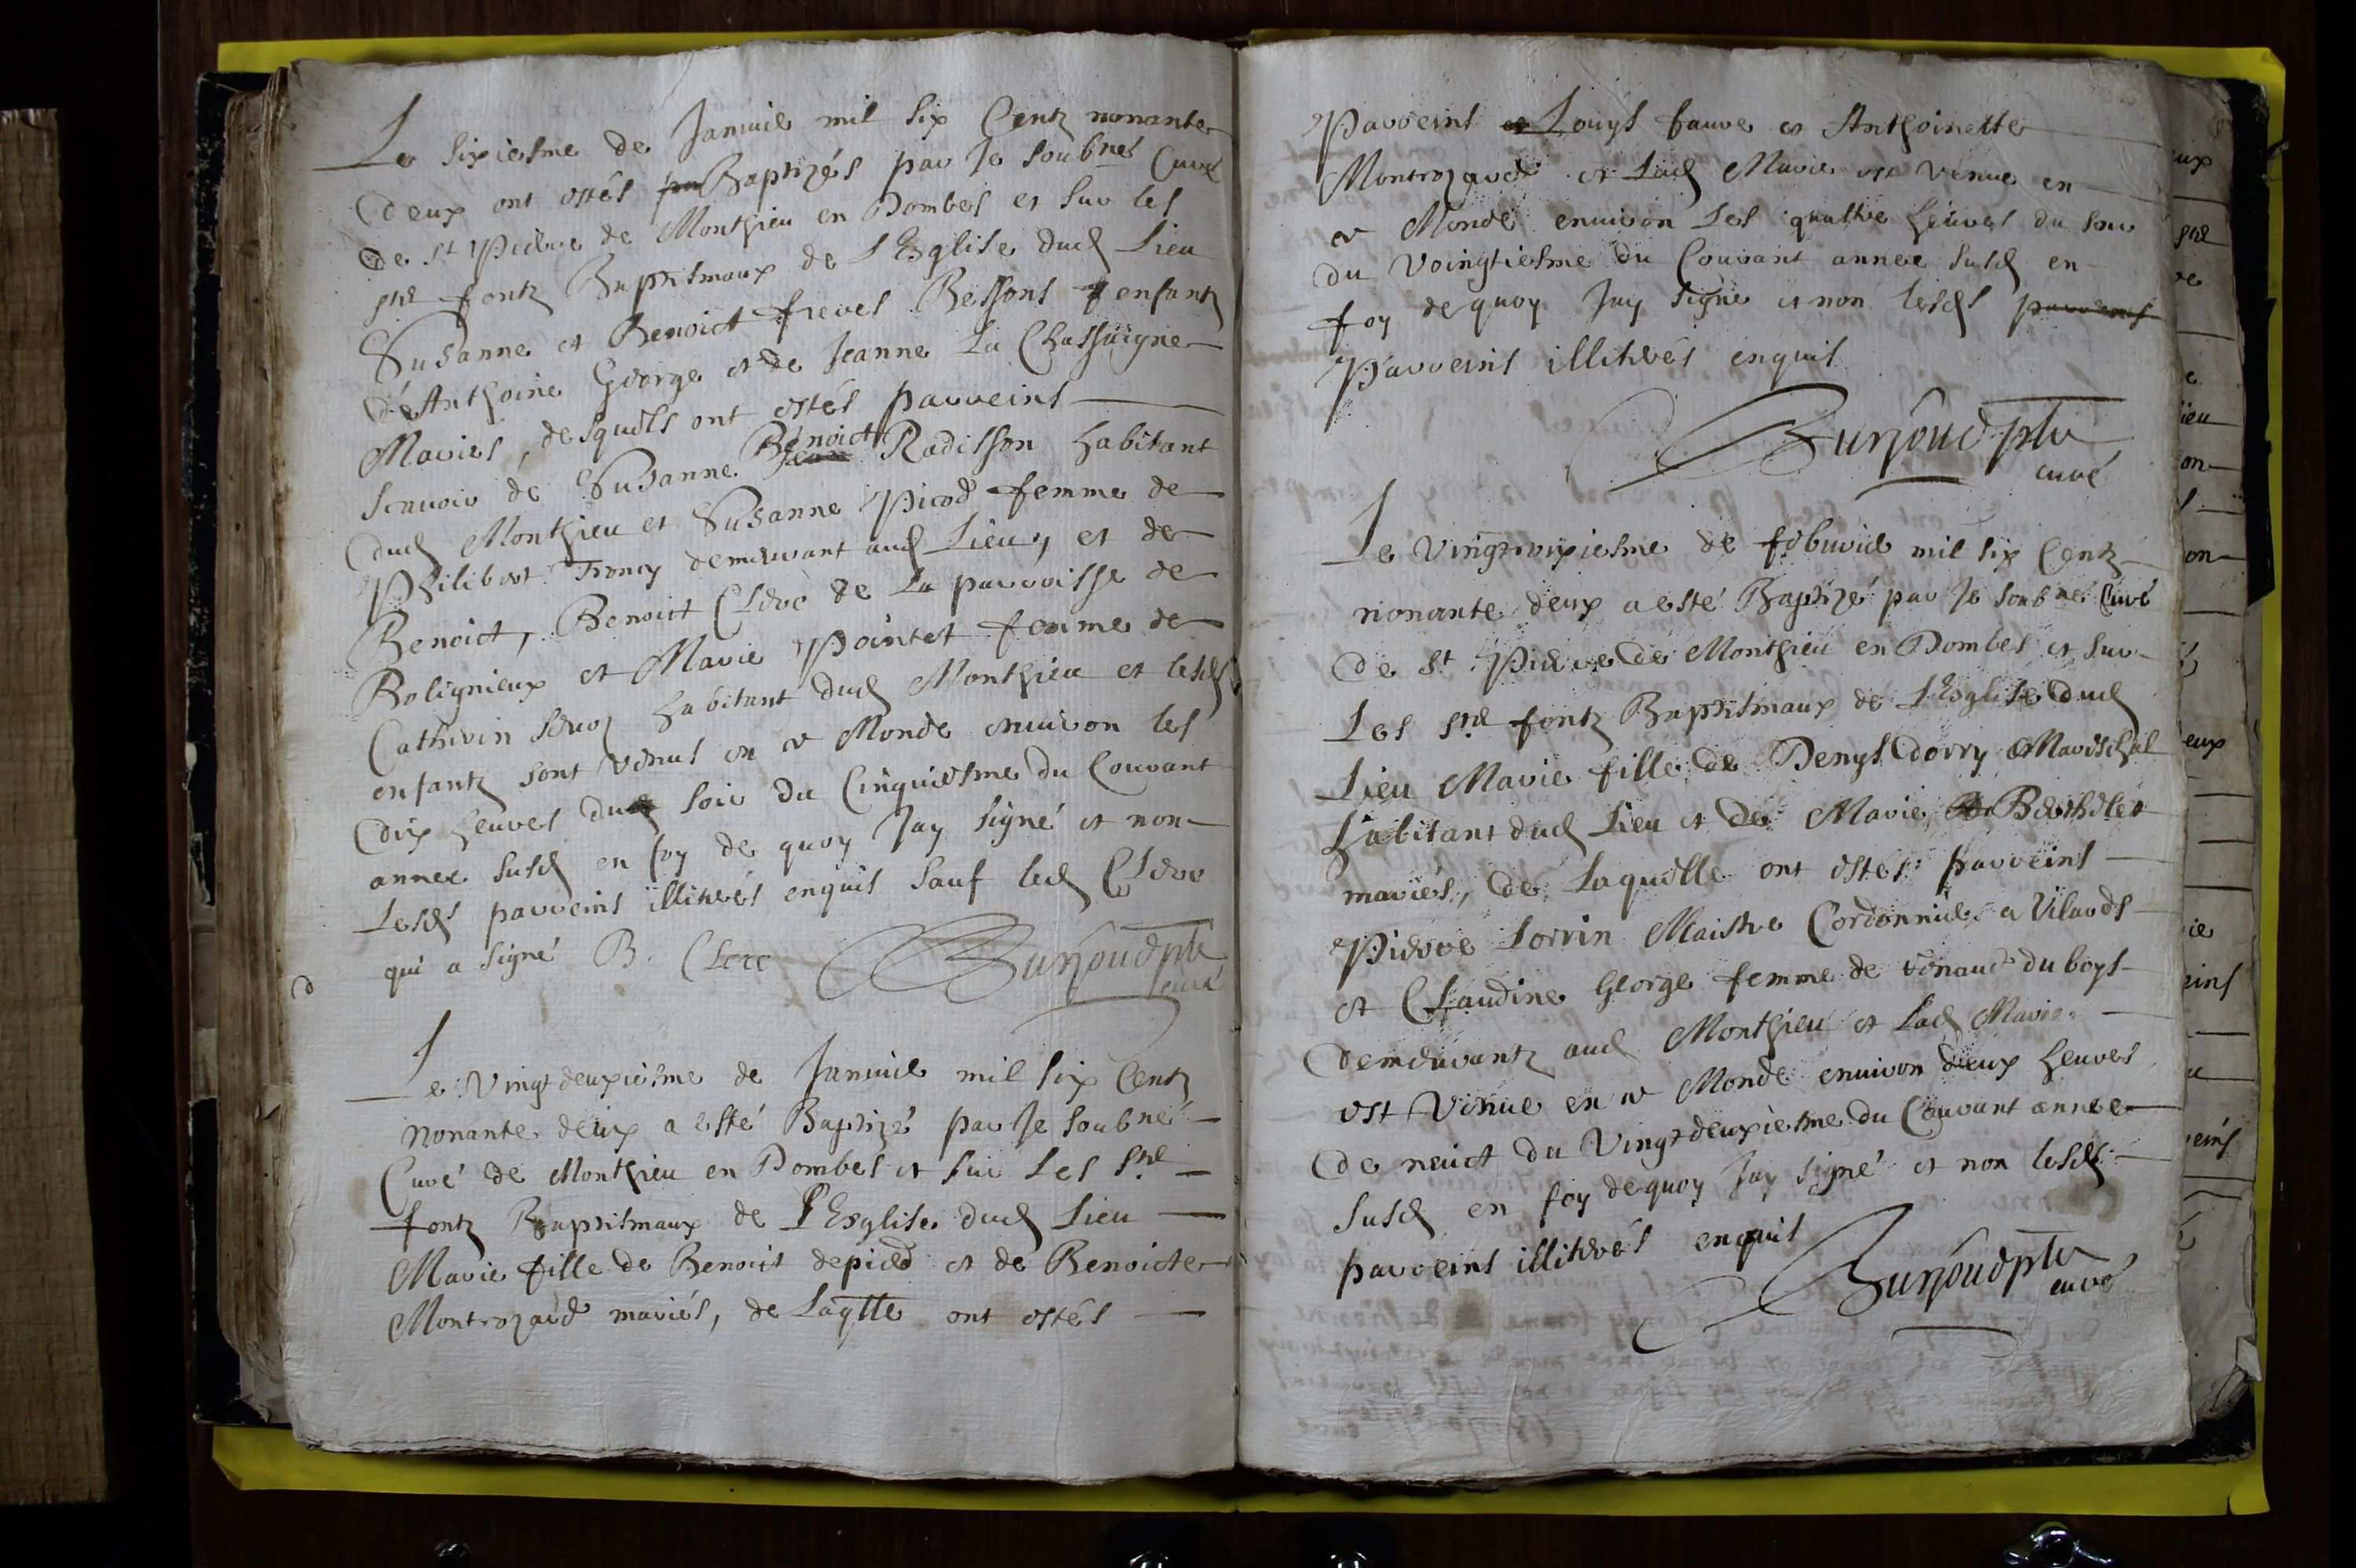 Le sixiesme de Janvier mil six Centz nonante
deux ont estés Baptizés par Je soubné Curé
de St Pierre de Monthieu en Dombes et sur les
sts fontz Baptismaux de L'Esglise dud Lieu
Susanne et Benoict freres Bessons enfantz
d'Anthoine George et de Jeanne La Chassaigne
Mariés, desquels ont estés parreins
scavoir de Susanne Benoict Radisson habitant
dud Monthieu et Susanne Picod femme de
Philibert Troncy demeurant aud Lieu, et de
Benoict, Benoict Clerc de La parroisse de
Bolignieux et Marie Pointet femme de
Catherin habitant dud Monthieu et lesds
enfantz sont venus en ce Monde environ les
dix heures du soir du Cinquiesme du Courant
annee susd en foy de quoy Jay signé et non
Lesds parreins illiterés enquis sauf led Clerc
qui a signé B. Clerc Burjoud ptre
curé
Le Vingtdeuxiesme de Janvier mil six Centz
nonante deux a esté Baptizé par Je soubné
Curé de Monthieu en Dombes et sur Les sts
fontz Baptismaux de L'Esglise dud Lieu
Marie fille de Benoict depied et de Benoicte
Montrozard mariés, de Laqlle ont estés
Parreins Louys faure et Anthoinette
Montrozard et Lad Marie est venue en
ce Monde environ Les quattre heures du soir
du Voingtiesme du Courant annee susd en
foy de quoy Jay signé et non lesds parreins
Parreins illiterés enquis
Burjoud ptre
curé
Le de febvrier mil six Centz
nonante deux a esté Baptizé par Je soubné Curé
de St Pierre de Monthieu en Dombes et sur
Les sts fontz Baptismaux de L'Esglise dud
Lieu Marie fille de Denys dorry Mareschal
habitant dud Lieu et de Marie Berthelet
mariés, de Laquelle ont estés parreins
Pierre Lorrin Maistre Cordonnier a Vilards
et Claudine George femme de renaud du boys
demeurantz aud Monthieu et Lad Marie
est Venue en ce Monde environ deux heures
de neuict du Vingtdeuxiesme du Courant annee
susd en foy de quoy Jay signé et non lesds
parreins illiterés enquis
Burjoud ptre
curé